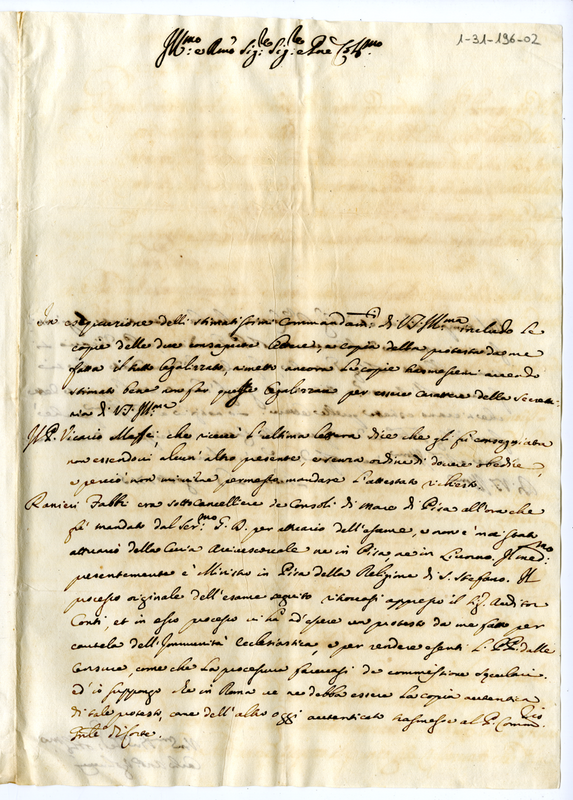 1-31-196-02
Ill.mo e Rmo Sig.re Sig.re e Pne Coll.mo
In esecuzione delli stimatissimi Commandam.ti di V.S. Ill.ma includo le
copie delle due consapute lettere, e copia della protesta da me
fatta il tutto legalizzato, rimetto ancora le copie trasmessemi avendo
stimato bene non far quelle legalizzare per essere carattere della Secrete-
ria di V.S. Ill.ma
Il P. Vicario Maffei, che riceve l'ultima lettera dice che gli fu consegnata
non essendovi alcun altro presente, e senza ordine di dovere obedire,
e perciò non mi viene permesso mandare l'attestato richiesto.
Ranieri Fabbri era sottocancelliere de Consoli di mare di Pisa all'ora che
fu mandato dal Ser.mo G. D. per attuario dell'esame, e non è mai stato
attuario della Curia Arcivescovale ne in Pisa ne in Livorno. Il med.mo
presentemente è Ministro in Pisa della Religione di S. Stefano. Il
processo originale dell'esame seguito ritrovasi appresso il Sig. Auditor
Conti, et in esso processo vi ha da essere un protesto da me fatto per
cautela dell'Immunità Ecclesiastica, e per rendere esenti li PP. dalle
Censure, come che la processura facevasi da commissione secolare.
E di ciò suppongo che in Roma ve ne debba essere la copia autentica
di tale protesto, come dell'altro oggi autenticato trasmesso al P. Comm.rio
Gnle di Corte.